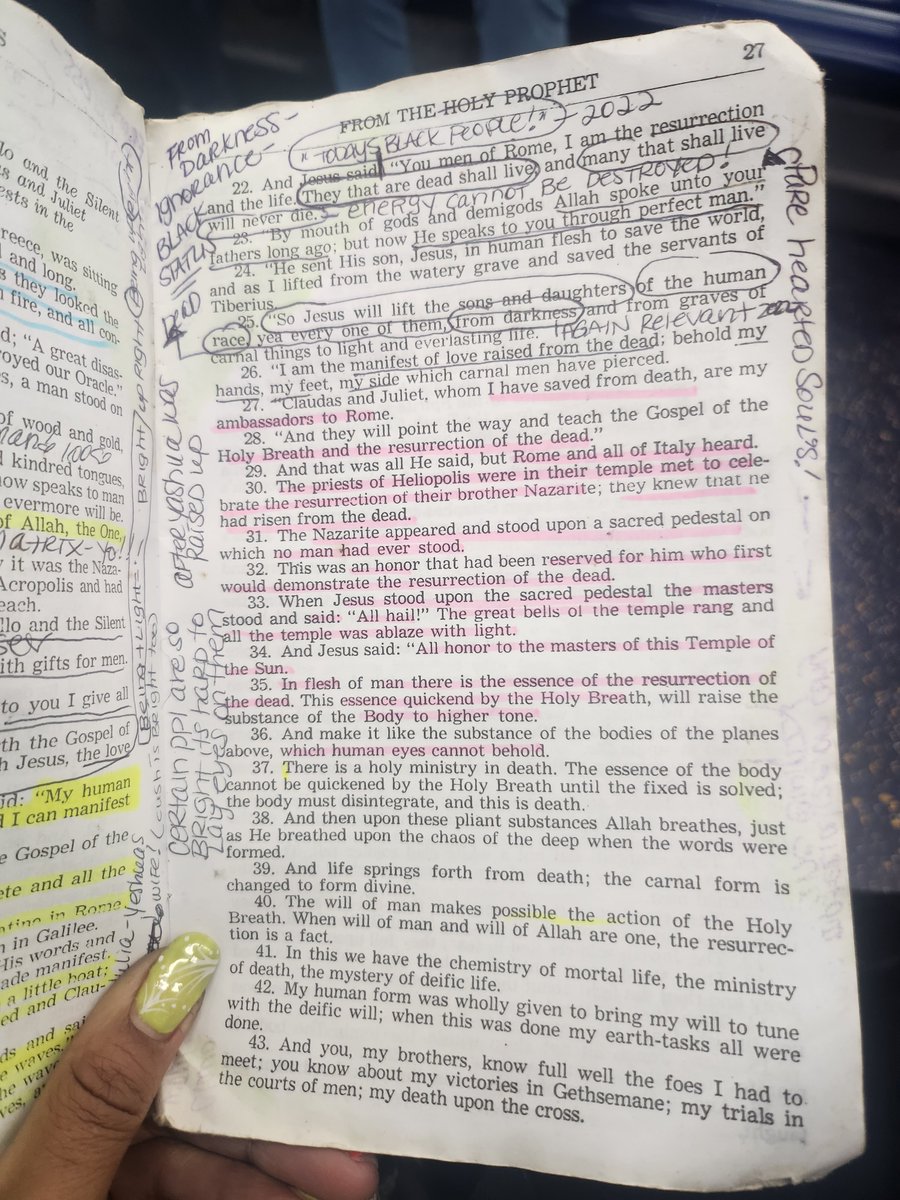 s
lo and the Silent
us and Juliet
ests in the
reece, was sitting
l and long.
s they looked the
n fire, and all con-
d; "A great disas-
royed our Oracle."
s, a man stood on
of wood and gold,
d kindred tongues,
now speaks to man
evermore will be.
of Allah, the One,
MATRIX-YO!!
y it was the Naza-
Acropolis and had
each.
llo and the Silent
ith gifts for men.
to you I give all
th the Gospel of
h Jesus, the love
id: "My human
d I can manifest
e Gospel of the
ete and all the
ntine in Rome.
n in Galilee.
His words and
ade manifest.
a little boat;
ed and Clau-
ds and sai
e waves,
he wav
ves, a
BEING + Light =
Bright/upright
27
FROM THE HOLY PROPHET
"TODAYS BLACK PEOPLE!!" - 2022
From
DARKNESS-
Ignorance-
BLACK
STATUS
DEAD
22. And Jesus said, "You men of Rome, I am the resurrection
and the life. They that are dead shall live, and many that shall live
will never die.
energy cannot BE DESTROYED!
23. "By mouth of gods and demigods Allah spoke unto your
fathers long ago; but now He speaks to you through perfect man."
24. "He sent His son, Jesus, in human flesh to save the world,
and as I lifted from the watery grave and saved the servants of
Tiberius.
25. "So Jesus will lift the sons and daughters of the human
race, yea every one of them, from darkness and from graves of
carnal things to light and everlasting life.
AGAIN Relevant
26. "I am the manifest of love raised from the dead; behold my
hands, my feet, my side which carnal men have pierced.
27. "Claudas and Juliet, whom I have saved from death, are my
ambassadors to Rome.
28. "And they will point the way and teach the Gospel of the
Holy Breath and the resurrection of the dead."
29. And that was all He said, but Rome and all of Italy heard.
30. The priests of Heliopolis were in their temple met to cele-
brate the resurrection of their brother Nazarite; they knew that he
had risen from the dead.
31. The Nazarite appeared and stood upon a sacred pedestal on
which no man had ever stood.
32. This was an honor that had been reserved for him who first
would demonstrate the resurrection of the dead.
33. When Jesus stood upon the sacred pedestal the masters
stood and said: "All hail!" The great bells of the temple rang and
all the temple was ablaze with light.
34. And Jesus said: "All honor to the masters of this Temple of
the Sun.
35. In flesh of man there is the essence of the resurrection of
the dead. This essence quickend by the Holy Breath, will raise the
substance of the Body to higher tone.
36. And make it like the substance of the bodies of the planes
above, which human eyes cannot behold.
37. There is a holy ministry in death. The essence of the body
cannot be quickened by the Holy Breath until the fixed is solved;
the body must disintegrate, and this is death.
38. And then upon these pliant substances Allah breathes, just
as He breathed upon the chaos of the deep when the words were
formed.
39. And life springs forth from death; the carnal form is
changed to form divine.
40. The will of man makes possible the action of the Holy
Breath. When will of man and will of Allah are one, the resurrec-
tion is a fact.
41. In this we have the chemistry of mortal life, the ministry
of death, the mystery of deific life.
42. My human form was wholly given to bring my will to tune
with the deific will; when this was done my earth-tasks all were
done.
43. And you, my brothers, know full well the foes I had to
meet; you know about my victories in Gethsemane; my trials in
the courts of men; my death upon the cross.
Pure hearted Souls!
AFTER yashua was
Raised up
certain ppl are so
BRight its hard to
Lay eyes on them